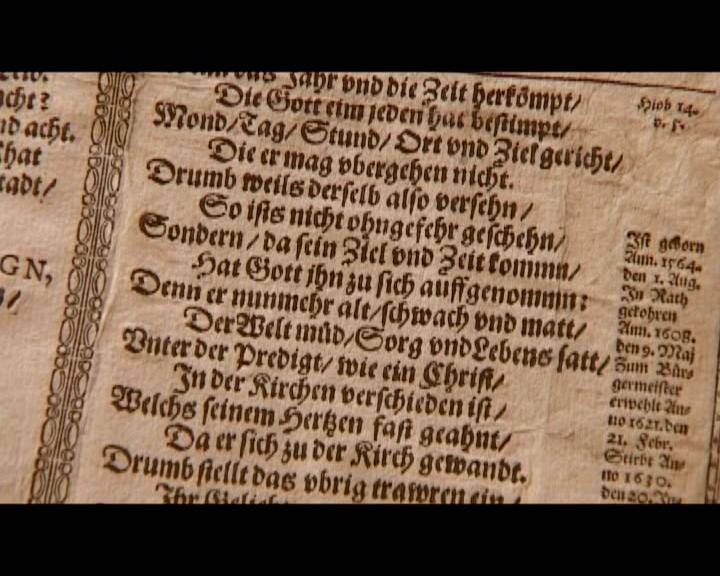 ncht?
nd acht.
that
tadt/
GN,
Jahr vnd die Zeit herkömpt/
Die Gott eim jeden hat bestimpt/
Mond/Tag/Stund/Ort vnd Ziel gericht/
Die er mag vbergehen nicht.
Drumb weils derselb also versehn/
So ists nicht ohngefehr geschehn/
Sondern/da sein Ziel vnd Zeit kommn/
Hat Gott jhn zu sich auffgenommn:
Denn er nunmehr alt/schwach vnd matt/
Der Welt müd/Sorg vnd Lebens satt/
Vnter der Predigt/wie ein Christ/
In der Kirchen verschieden ist/
Welchs seinem Hertzen fast geahnt/
Da er sich zu der Kirch gewandt.
Drumb stellt das vbrig trawren ein/
Hiob 14.
v. 5.
Ist geborn
Ann. 1564.
den 1. Aug.
In Rath
gekohren
Ann. 1608.
den 9. Maj
Zum Bür-
germeister
erwehlt An-
no 1621. den
21. Febr.
Stirbt An-
no 1630.
den 20.